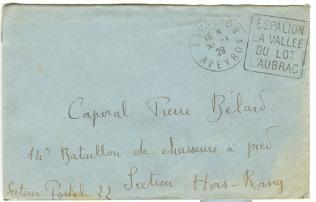 ESPALION
18 *
30 -1
28
AVEYRON
ESPALION
LA VALLÉE
DU LOT
L'AUBRAC
Caporal Pierre Bélard
14e Bataillon de chasseurs à pied
Section Hors-Rang
Secteur Postal 22